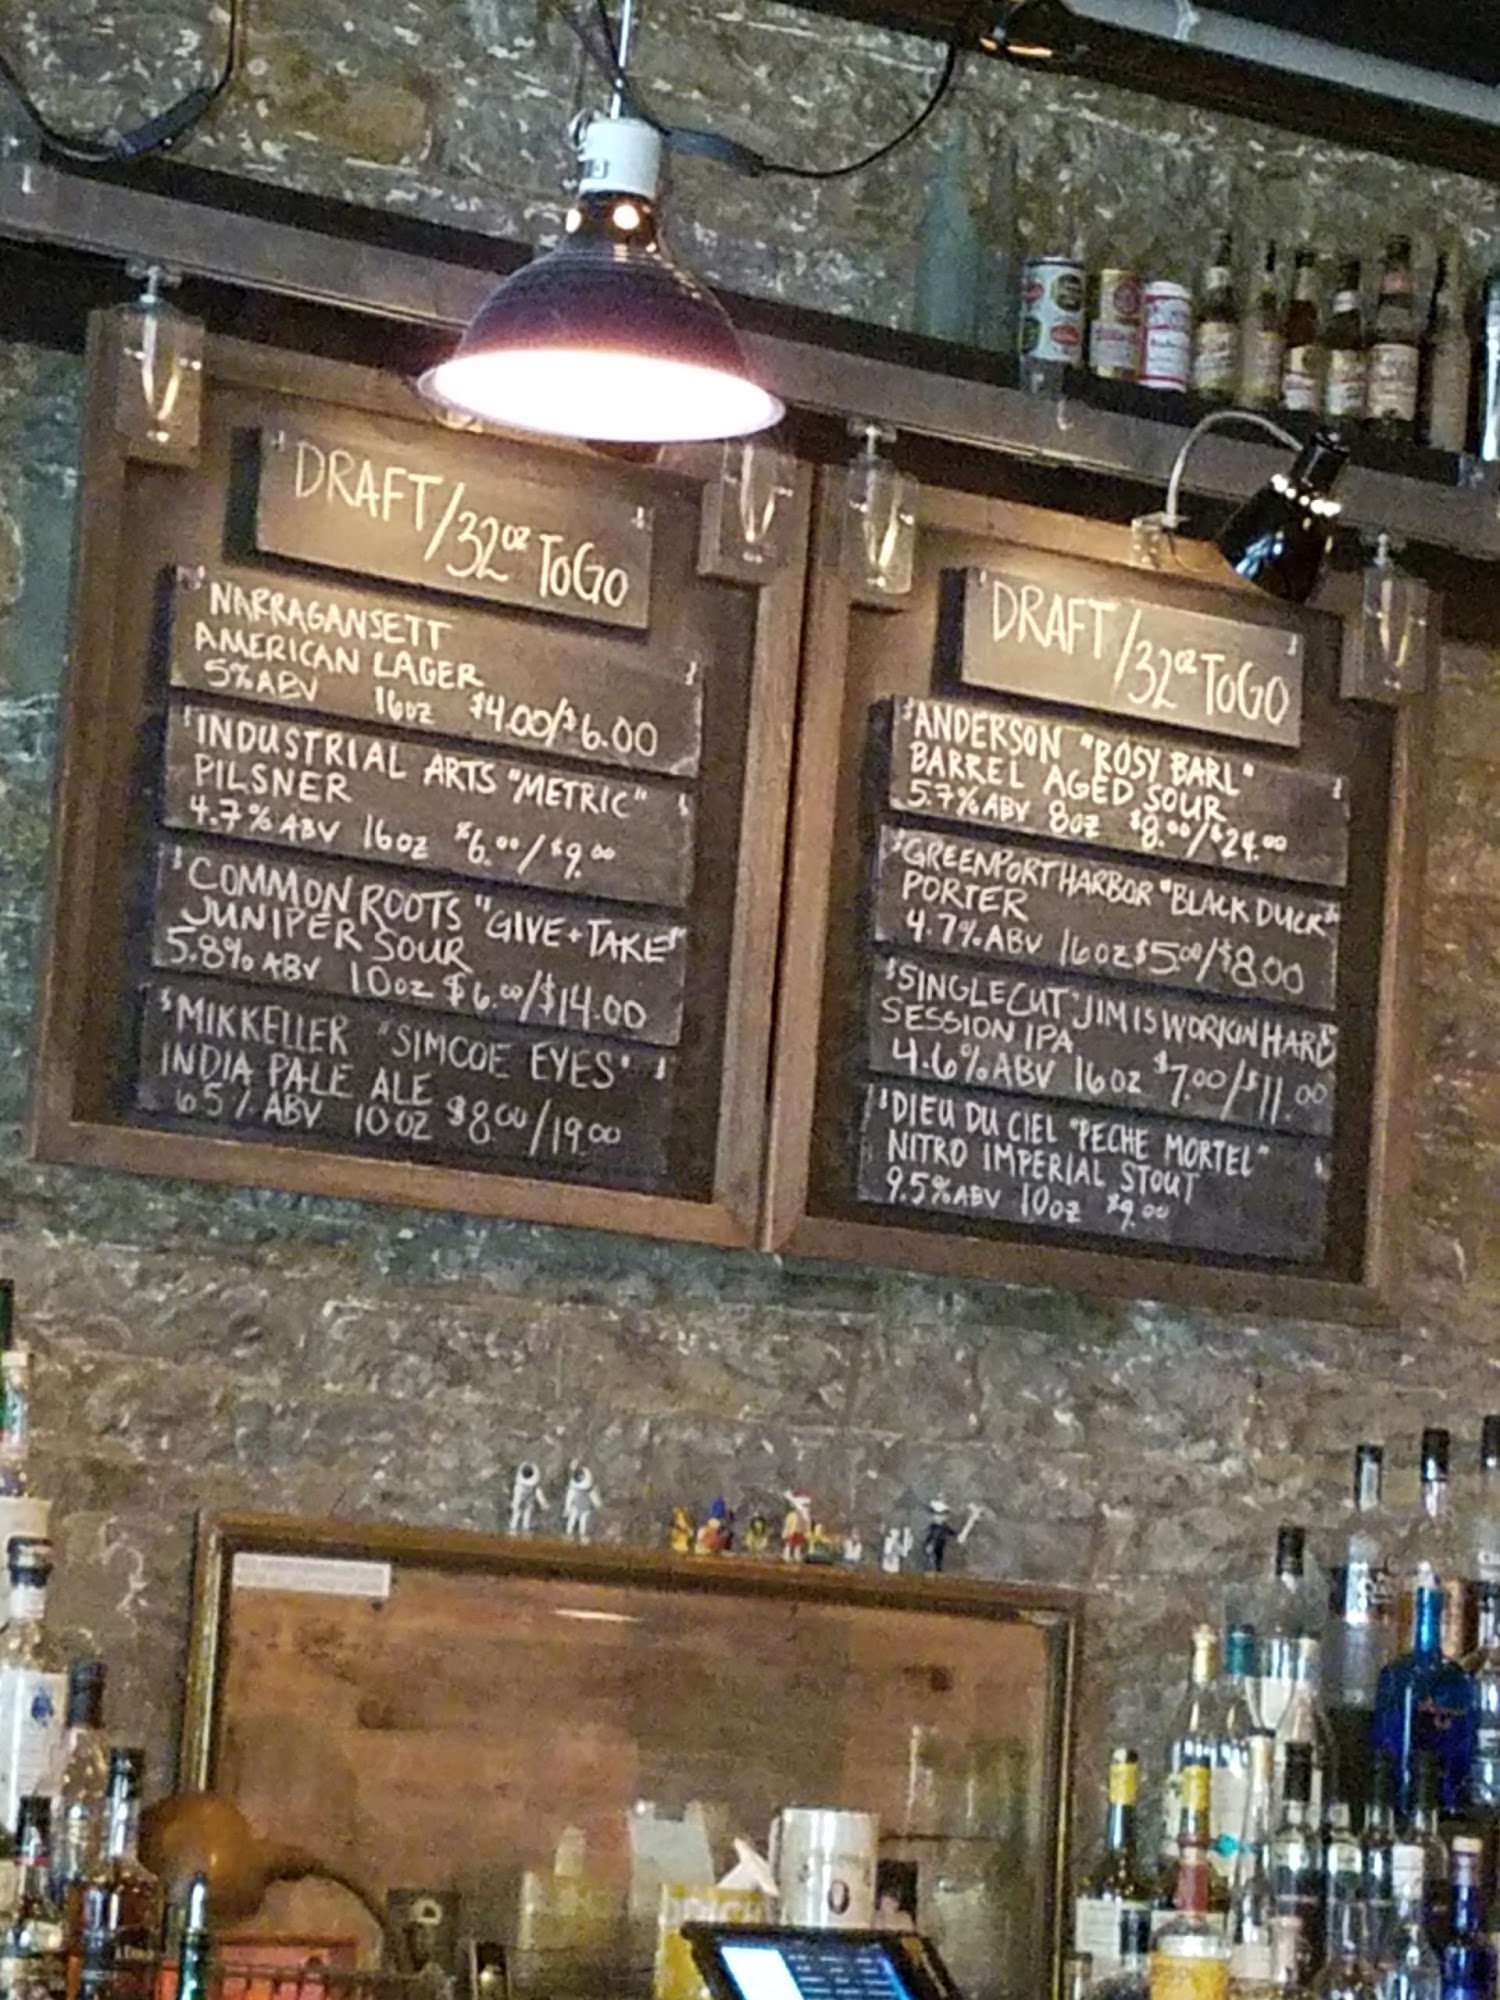 DRAFT/32oz ToGo
NARRAGANSETT
AMERICAN LAGER
5% ABV 16oz $4.00/$6.00
INDUSTRIAL ARTS "METRIC"
PILSNER
4.7% ABV 16oz $6.00/$9.00
COMMON ROOTS "GIVE+TAKE"
JUNIPER SOUR
5.8% ABV 10oz $6.00/$14.00
MIKKELLER "SIMCOE EYES"
INDIA PALE ALE
6.5% ABV 10oz $8.00/19.00
DRAFT/32oz ToGo
ANDERSON "ROSY BARL"
BARREL AGED SOUR
5.7% ABV 8oz $8.00/$24.00
GREENPORT HARBOR "BLACK DUCK"
PORTER
4.7% ABV 16oz $5.00/$8.00
SINGLECUT "JIM IS WORKIN HARD"
SESSION IPA
4.6% ABV 16oz $7.00/$11.00
DIEU DU CIEL "PECHE MORTEL"
NITRO IMPERIAL STOUT
9.5% ABV 10oz $9.00